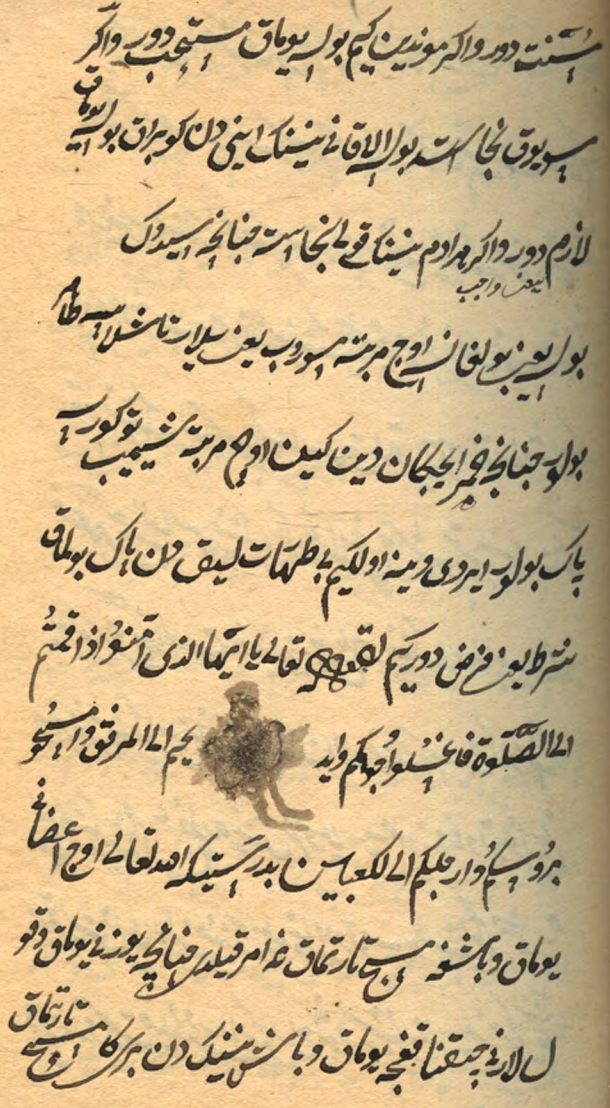 سُنّت دور واکر موندین کیم بولسه یوماق مستحب دور واکر
سیوق نجاست بولسه الاقانی نینك اینی دن کوبراق بولسه یوماق
لازم دور واکر مرادم نینك قولی نجاسته جنانچه سیدوك
یعنی واجب
بولسه یعنی بولغانسه اوج مرتبه سوروب یعنی ییلار تاشلاسه طاهر
بولور جنانچه خمر ایچکان دین کین اوج مرتبه توکورسه
پاك بولور ایردی وینه اولکیم بی طهارت لیق دن پاك بولماق
شرط یعنی فرض دور کیم لقوله تعالی یا ایّها الذی آمَنوُا اذا قمتُم
الی الصّلوٰة فاغسلوا وُجوهکم واید یکم الی المرفق وامسحُوا
برُوسکم وارجلکم الی لکعبین بدرستیکه الله تعالی اوج اعضانی
یوماق وباشغه مسح تارتماق غه امر قیلدی جنانچه یوزنی یوماق وقو
ل لارنی چیقناقغچه یوماق وباش نینك دن بری کا مسح تارتماق